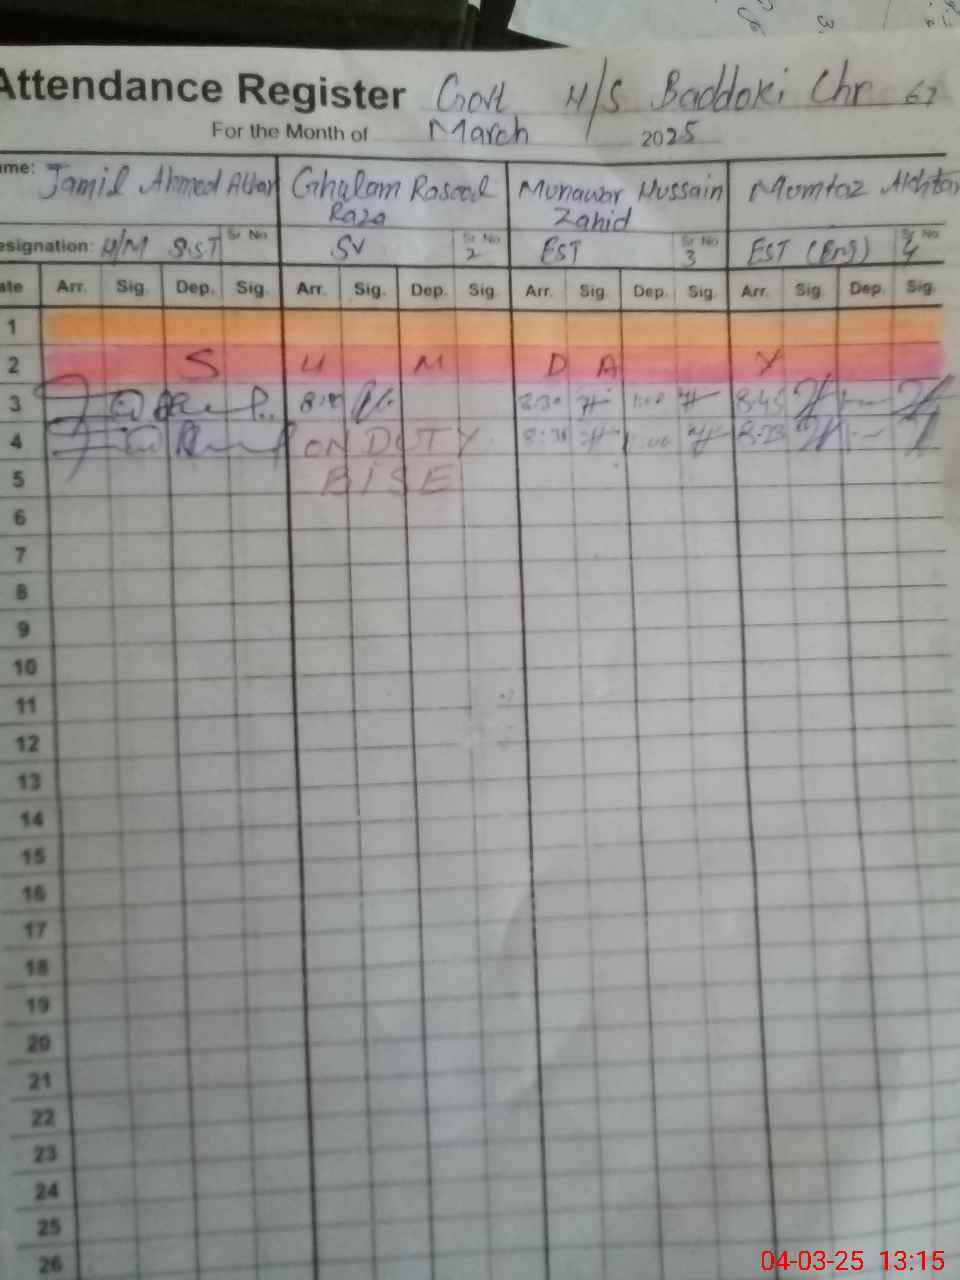 Attendance Register Govt H/S Baddoki Chr 67
For the Month of March 2025
ame: Jamil Ahmed Ghulam Rasool Munawar Hussain Mumtaz Akhtar
Raza Zahid
esignation: H/M S.S.T Sr No SV Sr No 2 EST Sr No 3 EST (Eng) Sr No 4
ate Arr. Sig. Dep. Sig. Arr. Sig. Dep. Sig. Arr. Sig. Dep. Sig. Arr. Sig. Dep. Sig.
1
2 S U N D A Y
3 8:30 8:45
4 ON DUTY
5 BISE
6
7
8
9
10
11
12
13
14
15
16
17
18
19
20
21
22
23
24
25
26
04-03-25 13:15